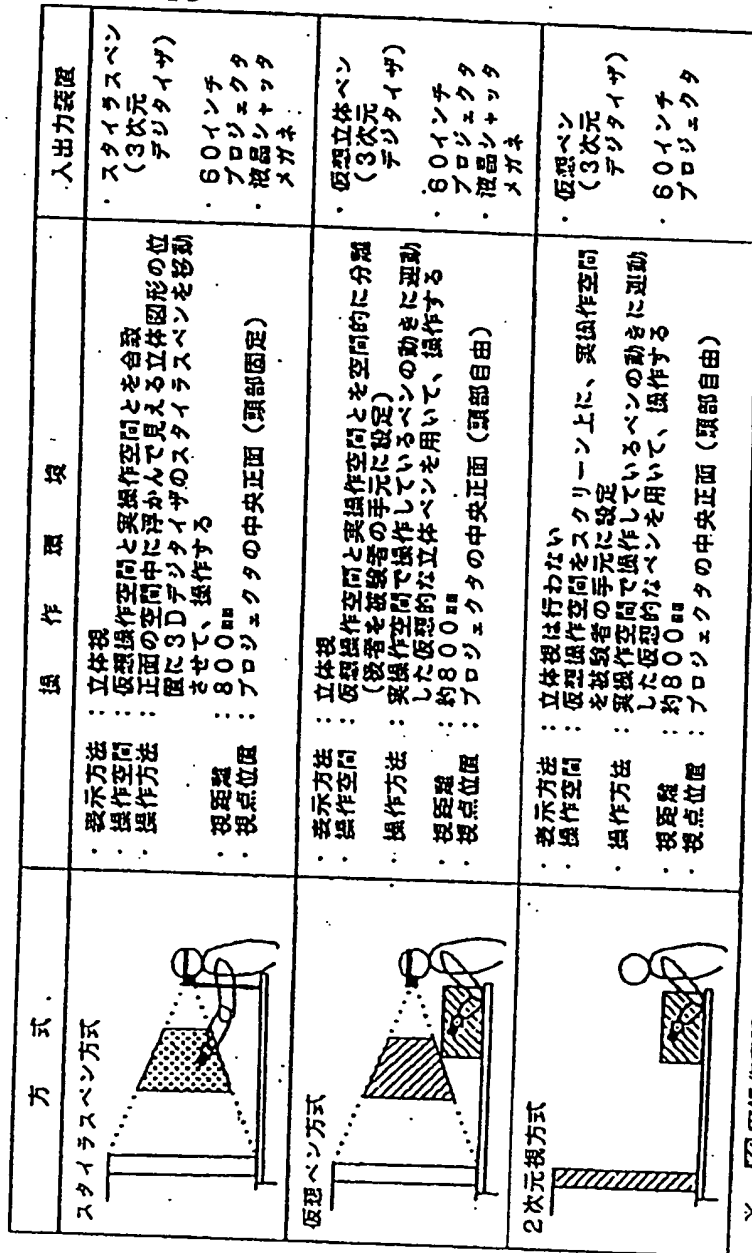 方式
操作環境
入出力装置
スタイラスペン方式
・表示方法：立体視
・操作空間：仮想操作空間と実操作空間とを合致
・操作方法：正面の空間中に浮かんで見える立体図形の位
置に3Dデジタイザのスタイラスペンを移動
させて、操作する
・視距離：800mm
・視点位置：プロジェクタの中央正面（頭部固定）
・スタイラスペン
（3次元
デジタイザ）
・60インチ
プロジェクタ
・液晶シャッタ
メガネ
仮想ペン方式
・表示方法：立体視
・操作空間：仮想操作空間と実操作空間とを空間的に分離
（後者を被験者の手元に設定）
・操作方法：実操作空間で操作しているペンの動きに連動
した仮想的な立体ペンを用いて、操作する
・視距離：約800mm
・視点位置：プロジェクタの中央正面（頭部自由）
・仮想立体ペン
（3次元
デジタイザ）
・60インチ
プロジェクタ
・液晶シャッタ
メガネ
2次元視方式
・表示方法：立体視は行わない
・操作空間：仮想操作空間をスクリーン上に、実操作空間
を被験者の手元に設定
・操作方法：実操作空間で操作しているペンの動きに連動
した仮想的なペンを用いて、操作する
・視距離：約800mm
・視点位置：プロジェクタの中央正面（頭部自由）
・仮想ペン
（3次元
デジタイザ）
・60インチ
プロジェクタ
※